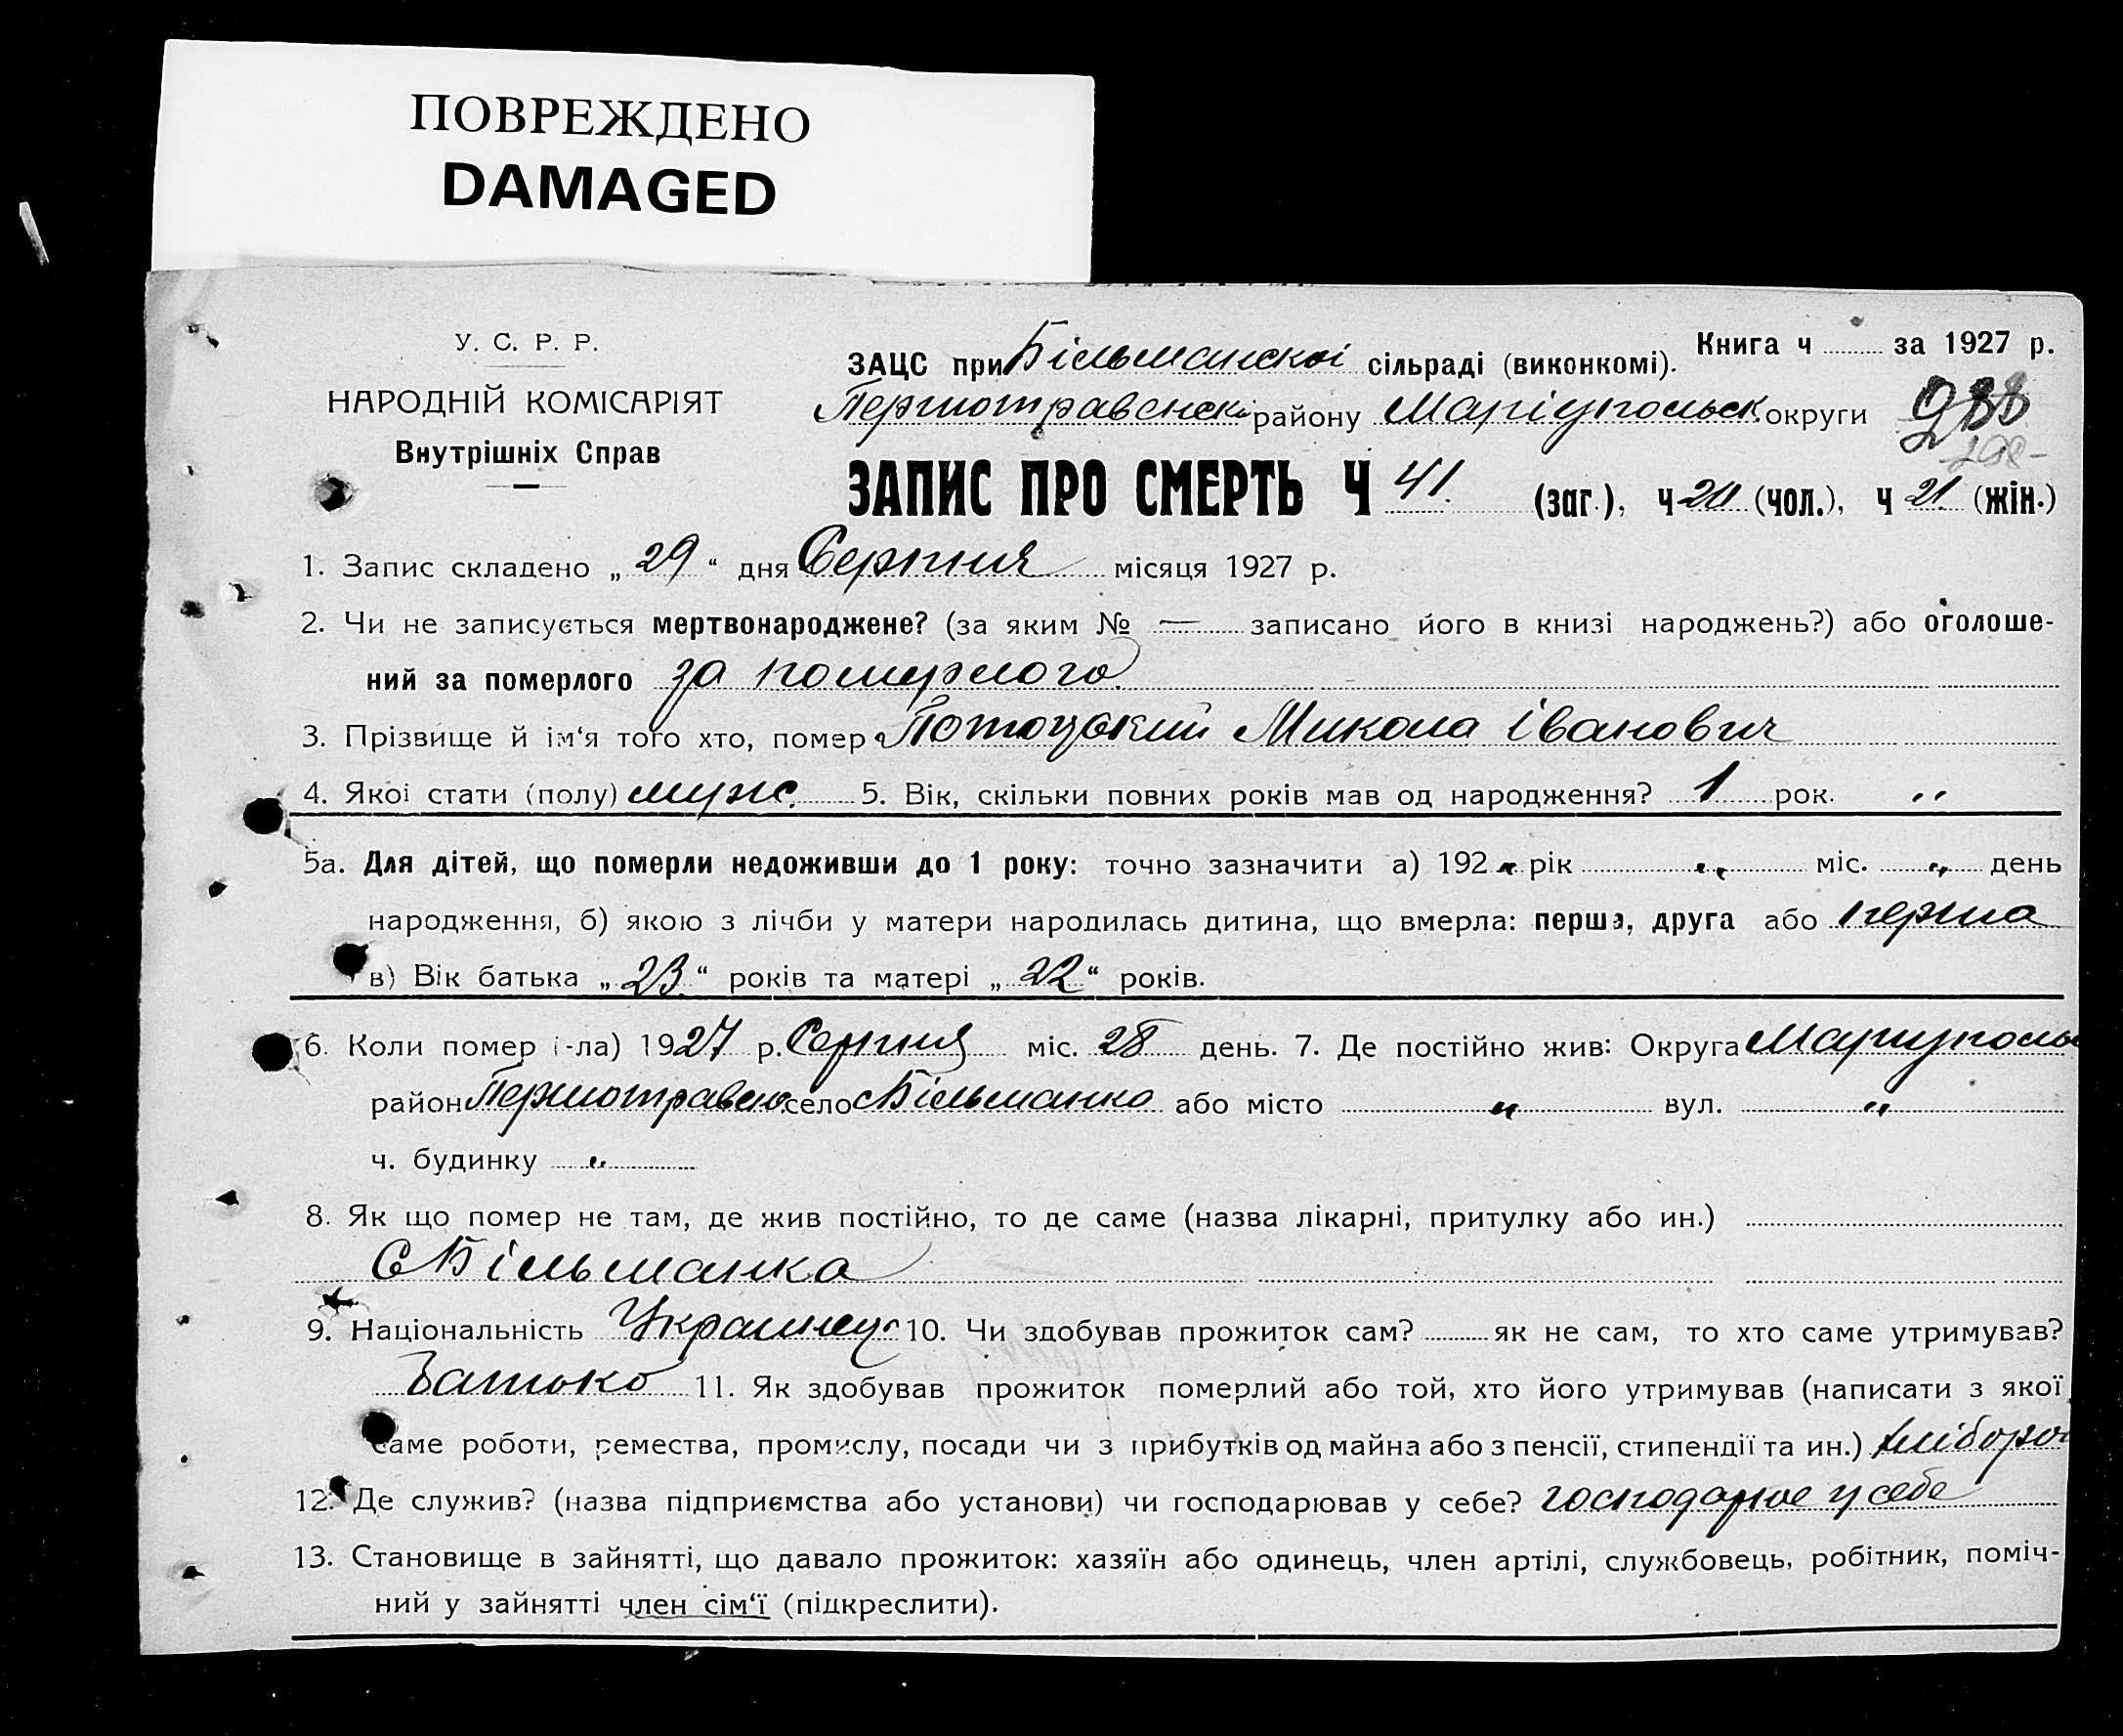 ПОВРЕЖДЕНО
DAMAGED
У. С. Р. Р.
НАРОДНІЙ КОМІСАРІЯТ
Внутрішніх Справ
Книга ч за 1927 р.
ЗАЦС при Більманскоі сільраді (виконкомі).
Першотравенскі району Маріупольск округи
288
ЗАПИС ПРО СМЕРТЬ Ч 41. (заг.), ч 20 (чол.), ч 21. (жін.)
1. Запис складено „ 29 “ дня Серпня місяця 1927 р.
2. Чи не записується мертвонароджене? (за яким № — записано його в книзі народжень?) або оголоше-
ний за померлого за померлого.
3. Прізвище й ім‘я того хто, помер Потоцький Микола Іванович
4. Якої стати (полу) муж. 5. Вік, скільки повних років мав од народження? 1 рок. "
5а. Для дітей, що померли недоживши до 1 року: точно зазначити а) 192 " рік " міс. " день
народження, б) якою з лічби у матери народилась дитина, що вмерла: перша, друга або перша
в) Вік батька „ 23 “ років та матері „ 22 “ років.
6. Коли помер (-ла) 1927 р. Серпня міс. 28 день. 7. Де постійно жив: Округа Мариуполь
район Першотравен село Більманка або місто " вул. "
ч. будинку "
8. Як що помер не там, де жив постійно, то де саме (назва лікарні, притулку або ин.)
с Більманка
9. Національність Украинец 10. Чи здобував прожиток сам? як не сам, то хто саме утримував?
Батько 11. Як здобував прожиток померлий або той, хто його утримував (написати з якої
саме роботи, ремества, промислу, посади чи з прибутків од майна або з пенсії, стипендії та ин.) хлібороб
12. Де служив? (назва підприємства або установи) чи господарював у себе? господарює у себе
13. Становище в зайнятті, що давало прожиток: хазяїн або одинець, член артілі, службовець, робітник, поміч-
ний у зайнятті член сім‘ї (підкреслити).